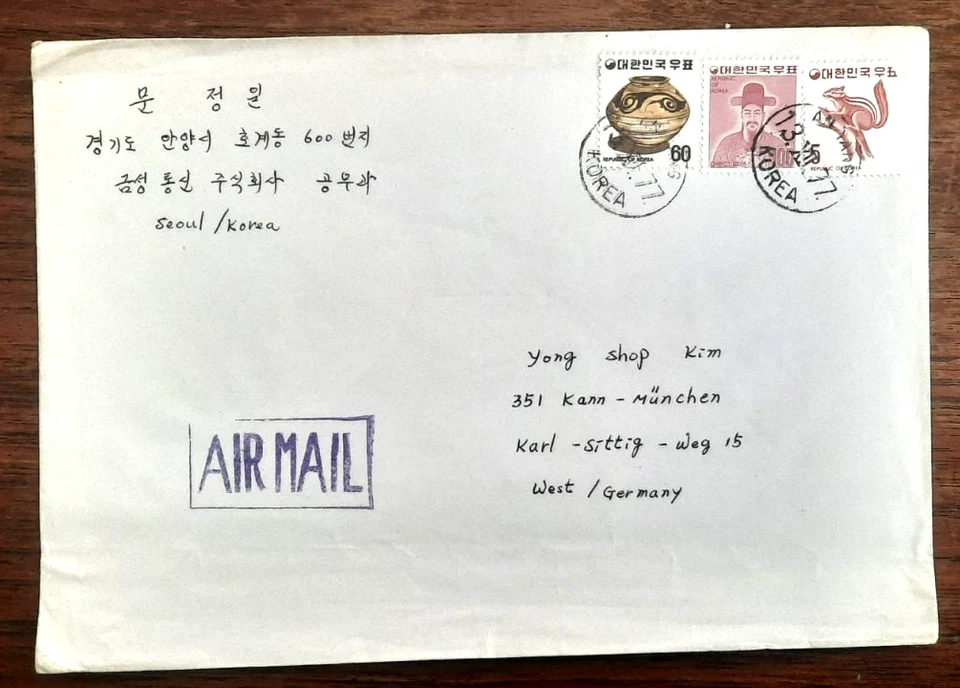 문 정 일
경기도 안양시 호계동 600번지
금성 통신 주식회사 공무과
Seoul / Korea
대한민국우표
60
REPUBLIC OF KOREA
대한민국우표
REPUBLIC
OF
KOREA
500
대한민국우표
REPUBLIC OF KOREA
77.
KOREA
ANYANG
13.
77.
KOREA
Yong shop Kim
351 Kann - München
Karl - Sittig - Weg 15
West / Germany
AIR MAIL